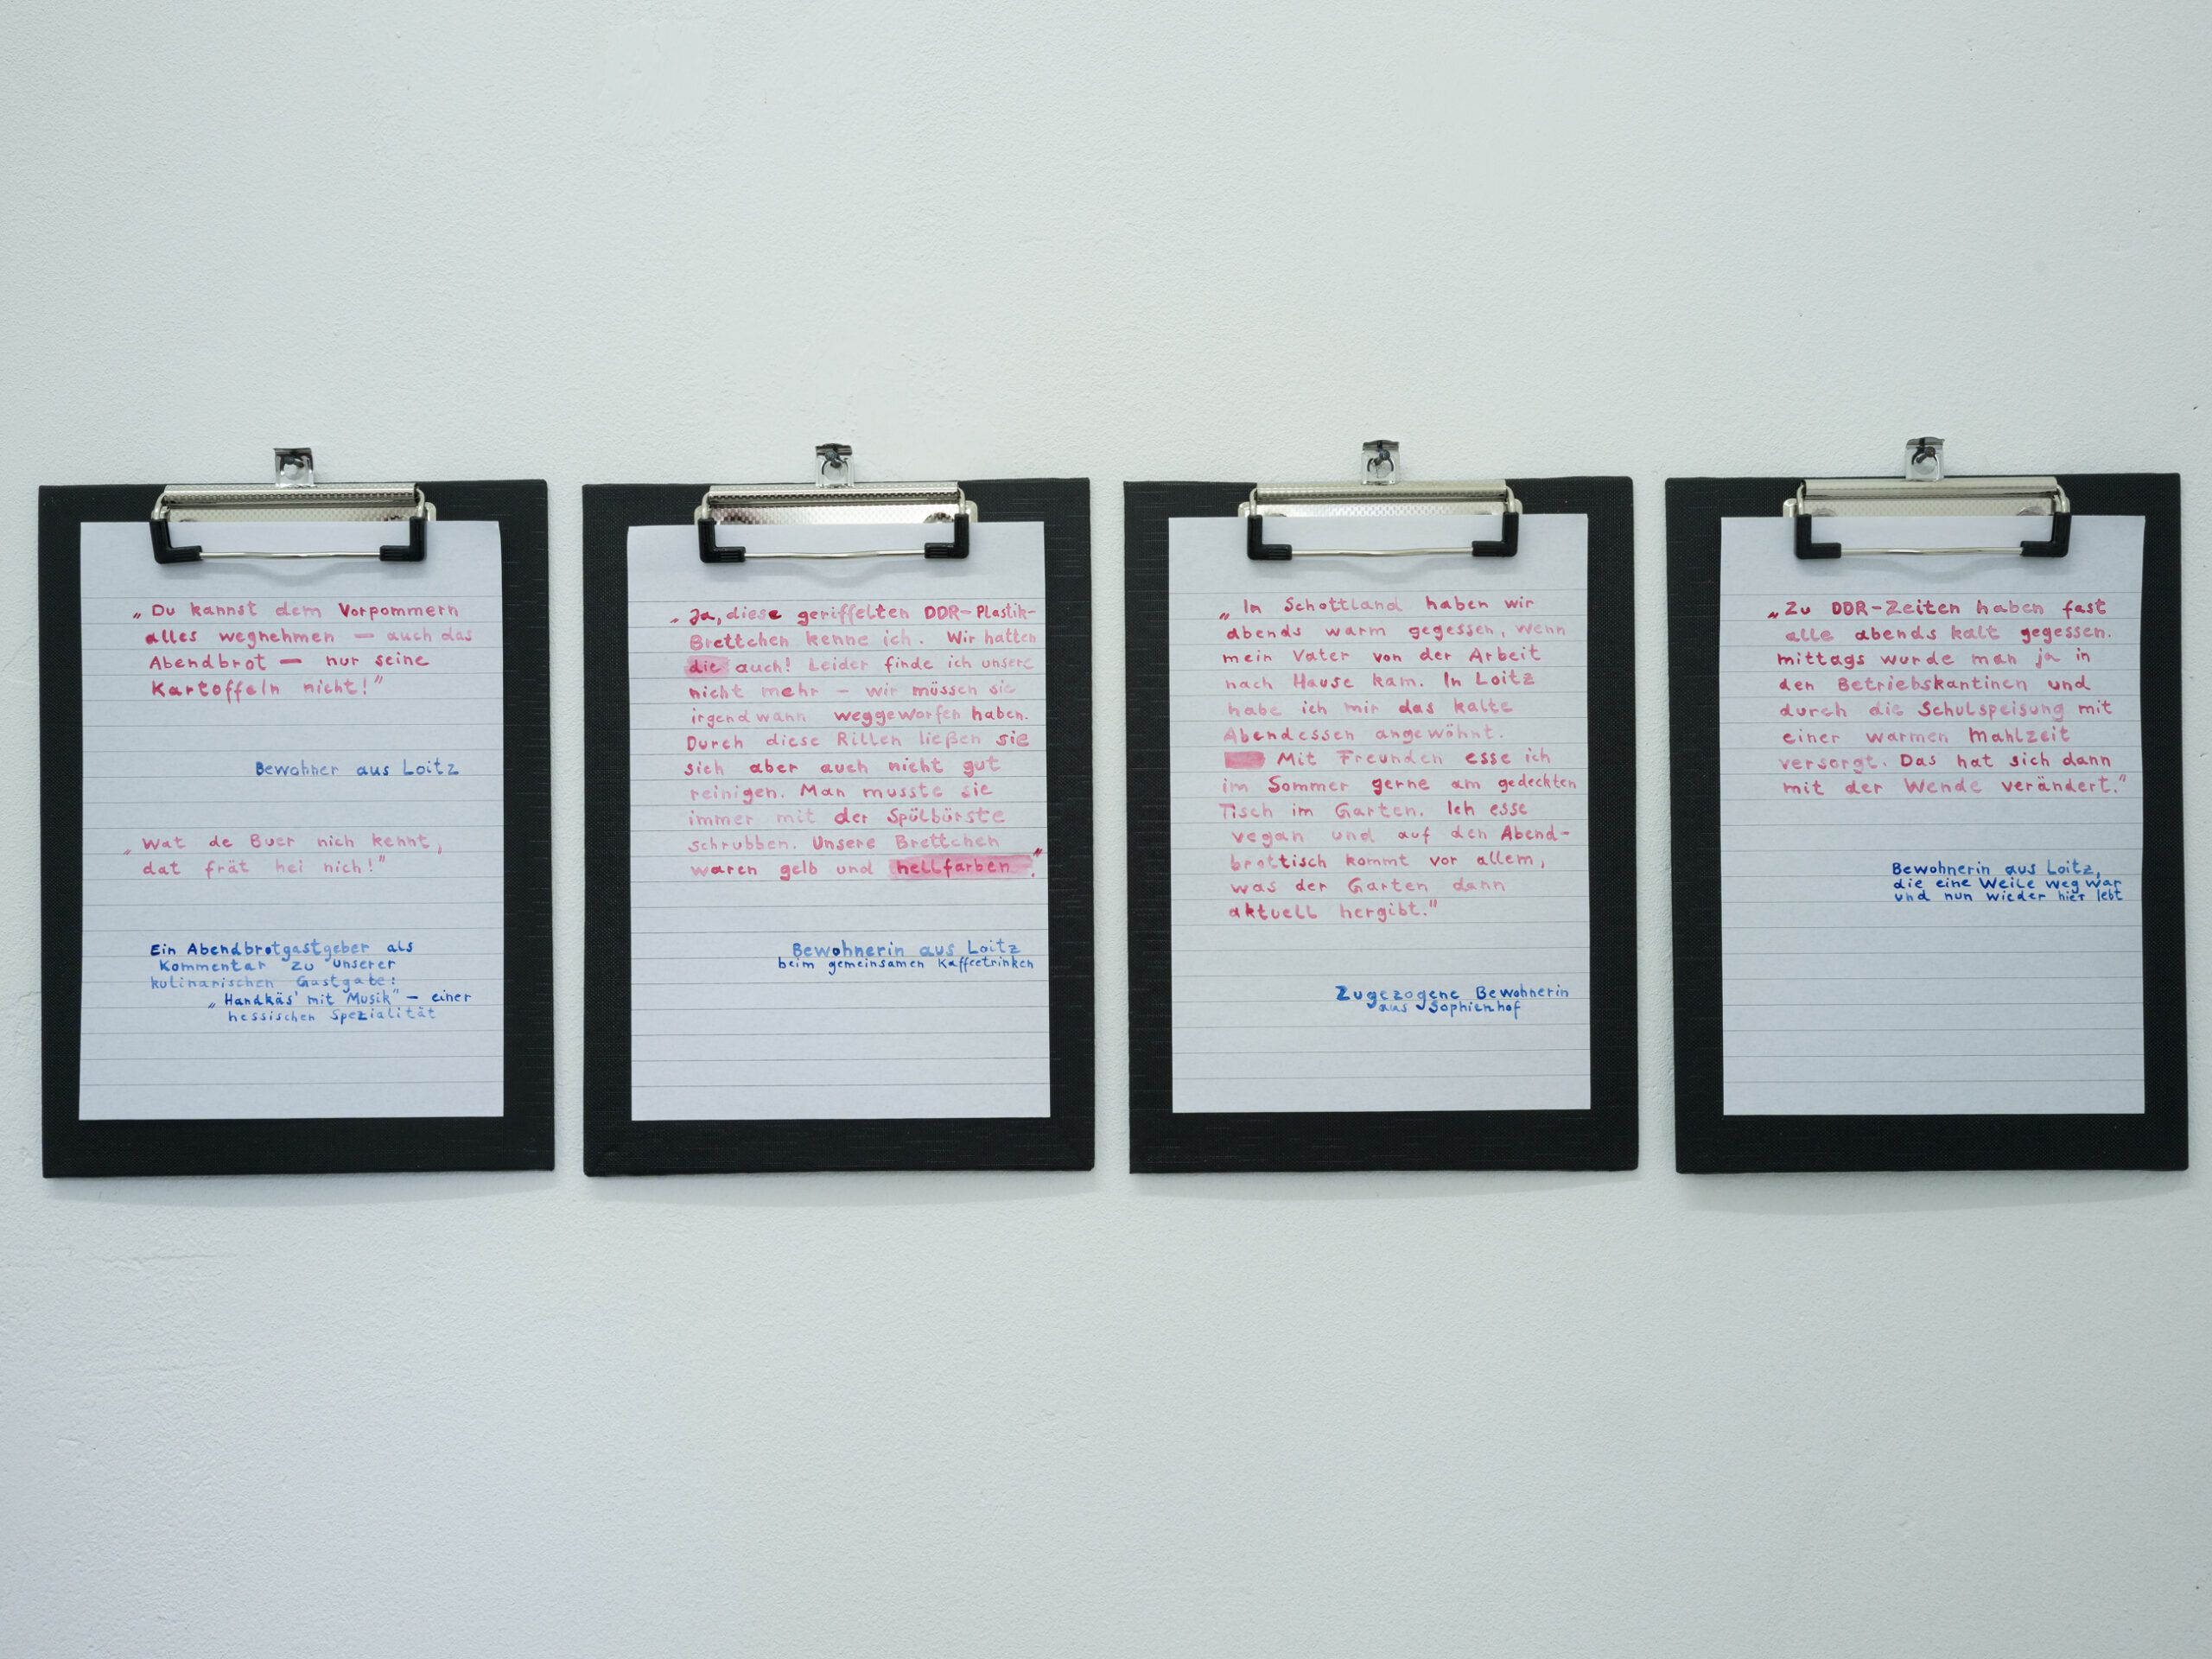 „Du kannst dem Vorpommern
alles wegnehmen — auch das
Abendbrot — nur seine
Kartoffeln nicht!"
Bewohner aus Loitz
„Wat de Buer nich kennt,
dat frät hei nich!"
Ein Abendbrotgastgeber als
Kommentar zu unserer
kulinarischen Gastgabe:
„Handkäs' mit Musik" — einer
hessischen Spezialität
„Ja, diese geriffelten DDR-Plastik-
Brettchen kenne ich. Wir hatten
die auch! Leider finde ich unsere
nicht mehr – wir müssen sie
irgendwann weggeworfen haben.
Durch diese Rillen ließen sie
sich aber auch nicht gut
reinigen. Man musste sie
immer mit der Spülbürste
schrubben. Unsere Brettchen
waren gelb und hellfarben."
Bewohnerin aus Loitz
beim gemeinsamen Kaffeetrinken
„In Schottland haben wir
abends warm gegessen, wenn
mein Vater von der Arbeit
nach Hause kam. In Loitz
habe ich mir das kalte
Abendessen angewöhnt.
Mit Freunden esse ich
im Sommer gerne am gedeckten
Tisch im Garten. Ich esse
vegan und auf den Abend-
brottisch kommt vor allem,
was der Garten dann
aktuell hergibt."
Zugezogene Bewohnerin
aus Sophienhof
„Zu DDR-Zeiten haben fast
alle abends kalt gegessen.
mittags wurde man ja in
den Betriebskantinen und
durch die Schulspeisung mit
einer warmen Mahlzeit
versorgt. Das hat sich dann
mit der Wende verändert."
Bewohnerin aus Loitz,
die eine Weile weg war
und nun wieder hier lebt